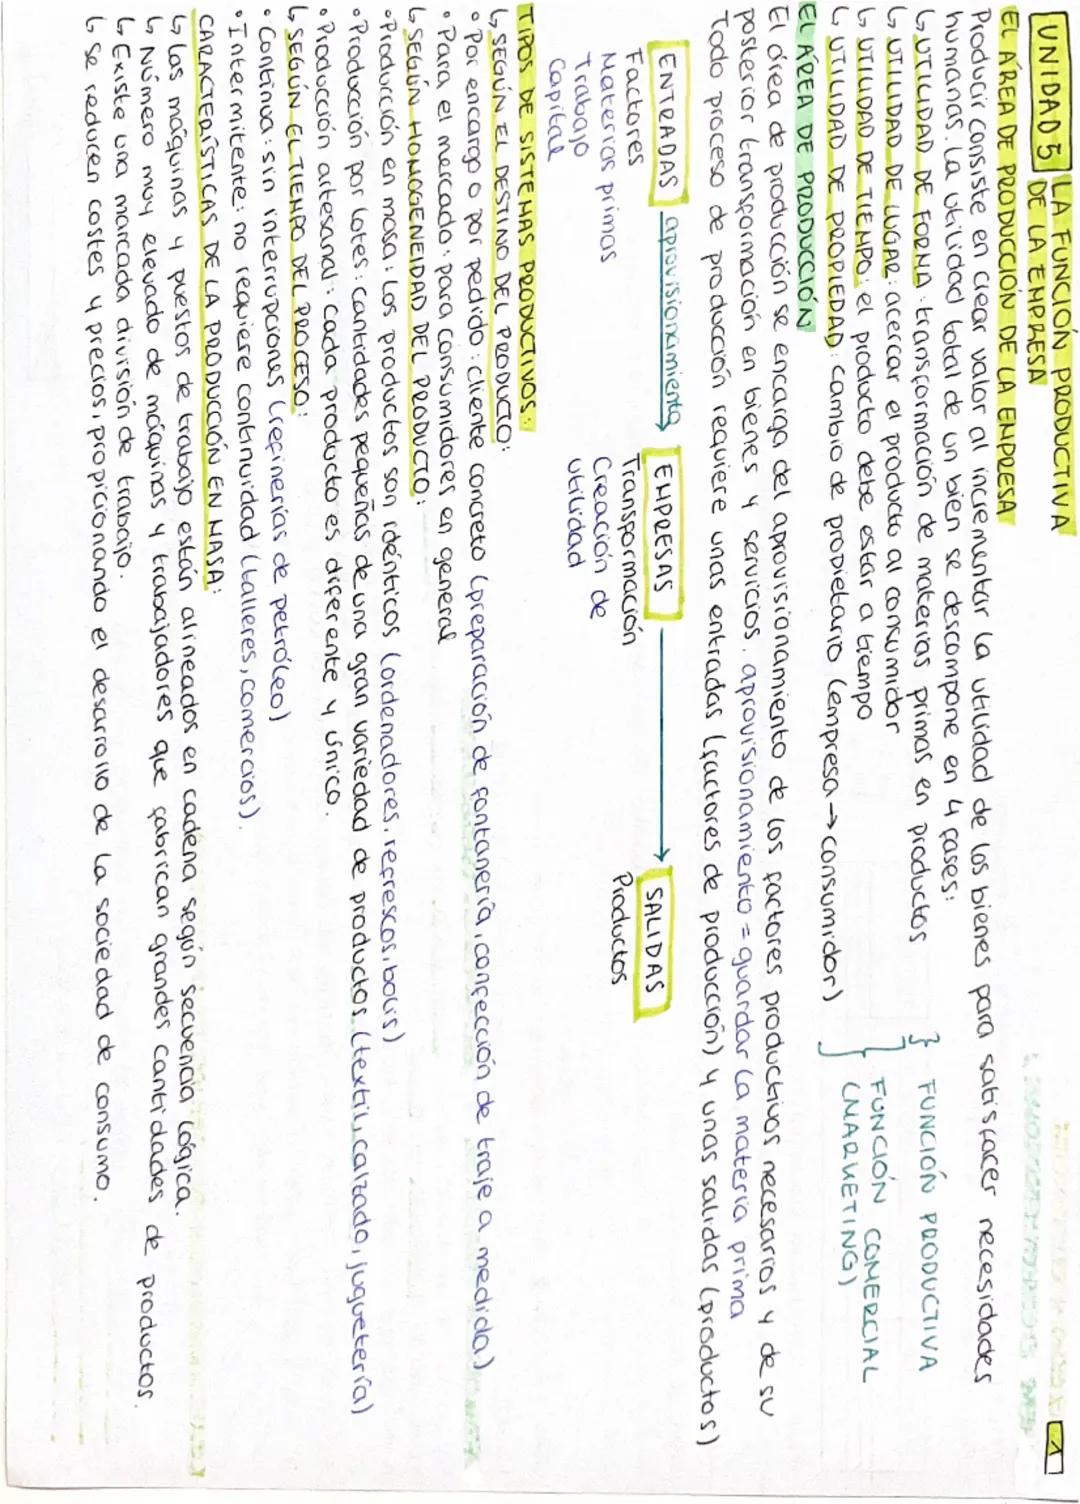 UNIDAD 5 LA FUNCIÓN PRODUCTIVA
DE LA EMPRESA
1
EL ÁREA DE PRODUCCIÓN DE LA EMPRESA
Producir consiste en crear valor al incrementar la utilidad de los bienes para satisfacer necesidades
humanas. La utilidad total de un bien se descompone en 4 fases:
↳ UTILIDAD DE FORMA: transformación de materias primas en productos } FUNCIÓN PRODUCTIVA
↳ UTILIDAD DE LUGAR: acercar el producto al consumidor
↳ UTILIDAD DE TIEMPO: el producto debe estar a tiempo
↳ UTILIDAD DE PROPIEDAD: cambio de propietario (empresa → consumidor)
} FUNCIÓN COMERCIAL
(MARKETING)
EL ÁREA DE PRODUCCIÓN
El área de producción se encarga del aprovisionamiento de los factores productivos necesarios y de su
posterior transformación en bienes y servicios. aprovisionamiento = guardar la materia prima
Todo proceso de producción requiere unas entradas (factores de producción) y unas salidas (productos)
ENTRADAS aprovisionamiento → EMPRESAS → SALIDAS
Factores Transformación Productos
Materias primas Creación de
Trabajo utilidad
Capital
TIPOS DE SISTEMAS PRODUCTIVOS:
↳ SEGÚN EL DESTINO DEL PRODUCTO:
• Por encargo o por pedido: cliente concreto (preparación de fontanería, confección de traje a medida)
• Para el mercado: para consumidores en general
↳ SEGÚN HOMOGENEIDAD DEL PRODUCTO:
• Producción en masa: los productos son idénticos (ordenadores, refrescos, bolis)
• Producción por lotes: cantidades pequeñas de una gran variedad de productos (textil, calzado, juguetería)
• Producción artesanal: cada producto es diferente y único.
↳ SEGÚN EL TIEMPO DEL PROCESO:
• Continua: sin interrupciones (refinerías de petróleo)
• Intermitente: no requiere continuidad (talleres, comercios).
CARACTERÍSTICAS DE LA PRODUCCIÓN EN MASA:
↳ Las máquinas y puestos de trabajo están alineados en cadena según secuencia lógica.
↳ Número muy elevado de máquinas y trabajadores que fabrican grandes cantidades de productos.
↳ Existe una marcada división de trabajo.
↳ Se reducen costes y precios, propicionando el desarrollo de la sociedad de consumo.